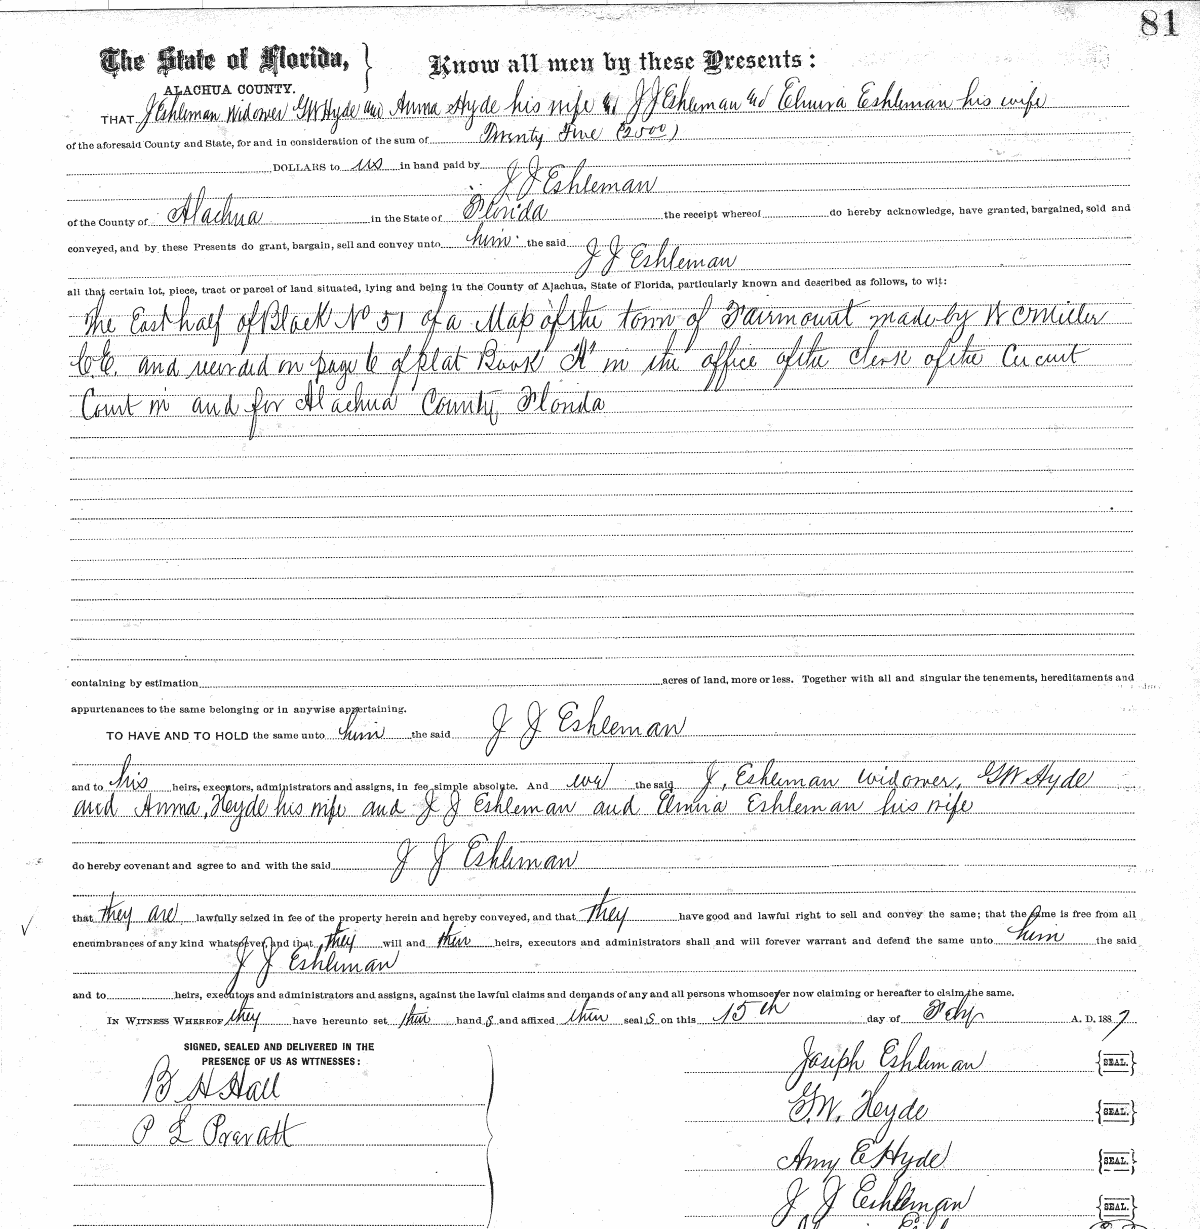 81
The State of Florida, } Know all men by these Presents:
ALACHUA COUNTY.
THAT J Eshleman Widower GW Hyde and Anna Hyde his wife & J J Eshleman and Elmira Eshleman his wife
of the aforesaid County and State, for and in consideration of the sum of Twenty Five (2500)
DOLLARS to us in hand paid by
J J Eshleman
of the County of Alachua in the State of Florida the receipt whereof do hereby acknowledge, have granted, bargained, sold and
conveyed, and by these Presents do grant, bargain, sell and convey unto him the said
J J Eshleman
all that certain lot, piece, tract or parcel of land situated, lying and being in the County of Alachua, State of Florida, particularly known and described as follows, to wit:
The East half of Block No 51 of a Map of the town of Fairmount made by W C Miller
C.E. and recorded on page 6 of plat Book "A" in the office of the Clerk of the Circuit
Court in and for Alachua County Florida
containing by estimation acres of land, more or less. Together with all and singular the tenements, hereditaments and
appurtenances to the same belonging or in anywise appertaining.
TO HAVE AND TO HOLD the same unto him the said J J Eshleman
and to his heirs, executors, administrators and assigns, in fee simple absolute. And we the said J, Eshleman widower, GW Hyde
and Anna, Heyde his wife and J J Eshleman and Elmira Eshleman his wife
do hereby covenant and agree to and with the said J J Eshleman
that they are lawfully seized in fee of the property herein and hereby conveyed, and that they have good and lawful right to sell and convey the same; that the same is free from all
encumbrances of any kind whatsoever, and that they will and their heirs, executors and administrators shall and will forever warrant and defend the same unto him the said
J J Eshleman
and to heirs, executors and administrators and assigns, against the lawful claims and demands of any and all persons whomsoever now claiming or hereafter to claim the same.
IN WITNESS WHEREOF they have hereunto set their hand s and affixed their seal s on this 15th day of Feby A. D. 1887
SIGNED, SEALED AND DELIVERED IN THE
PRESENCE OF US AS WITNESSES:
Joseph Eshleman {SEAL.}
B H Hall
G.W. Heyde {SEAL.}
P L Prevatt
Amy E Hyde {SEAL.}
J J Eshleman {SEAL.}